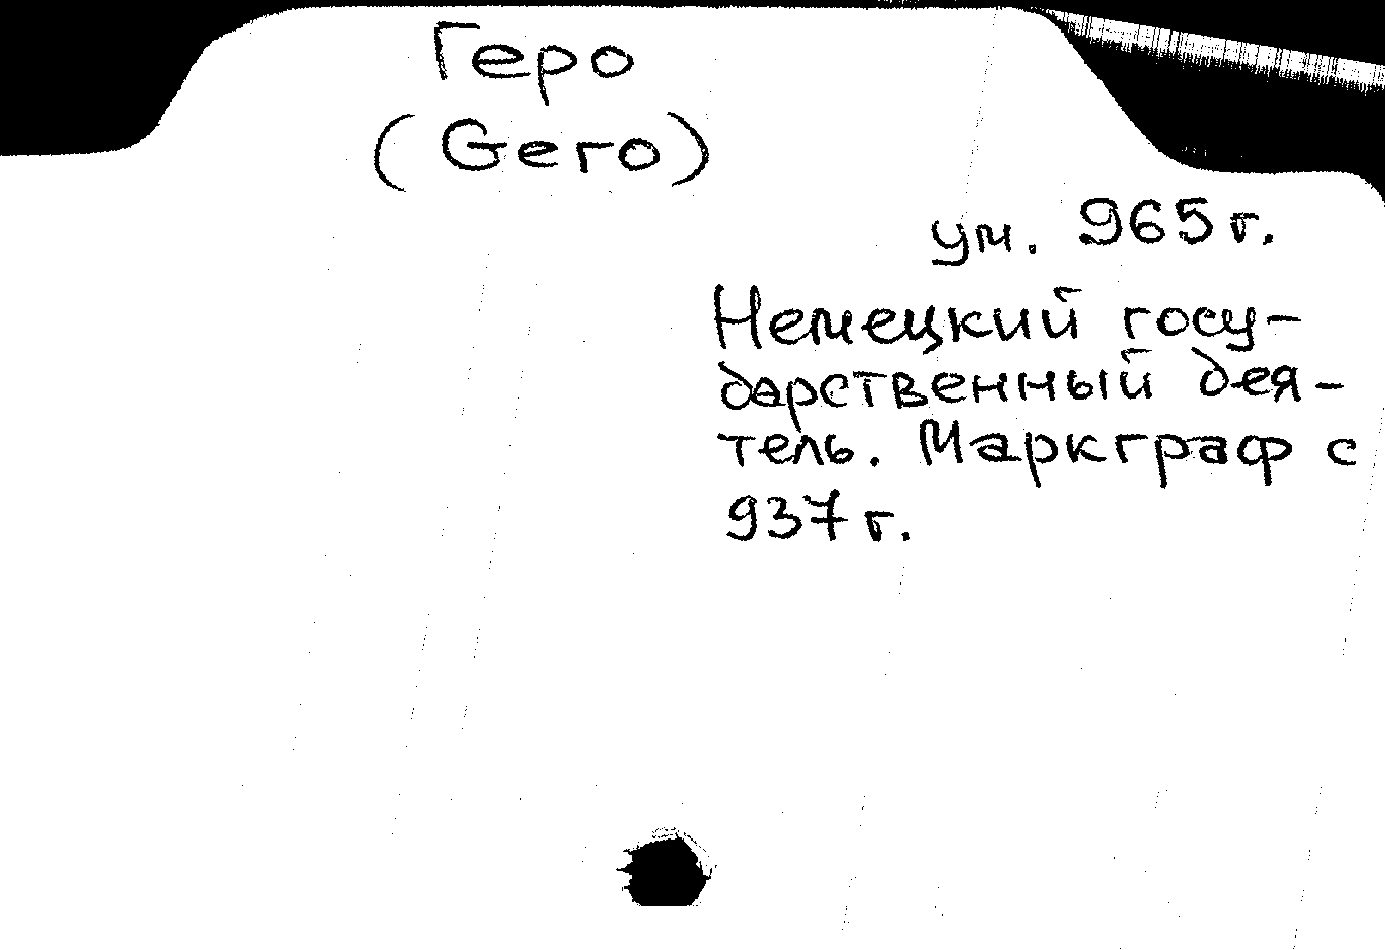 Геро
(Gero)
ум. 965 г.
Немецкий госу-
дарственный дея-
тель. Маркграф с
937 г.